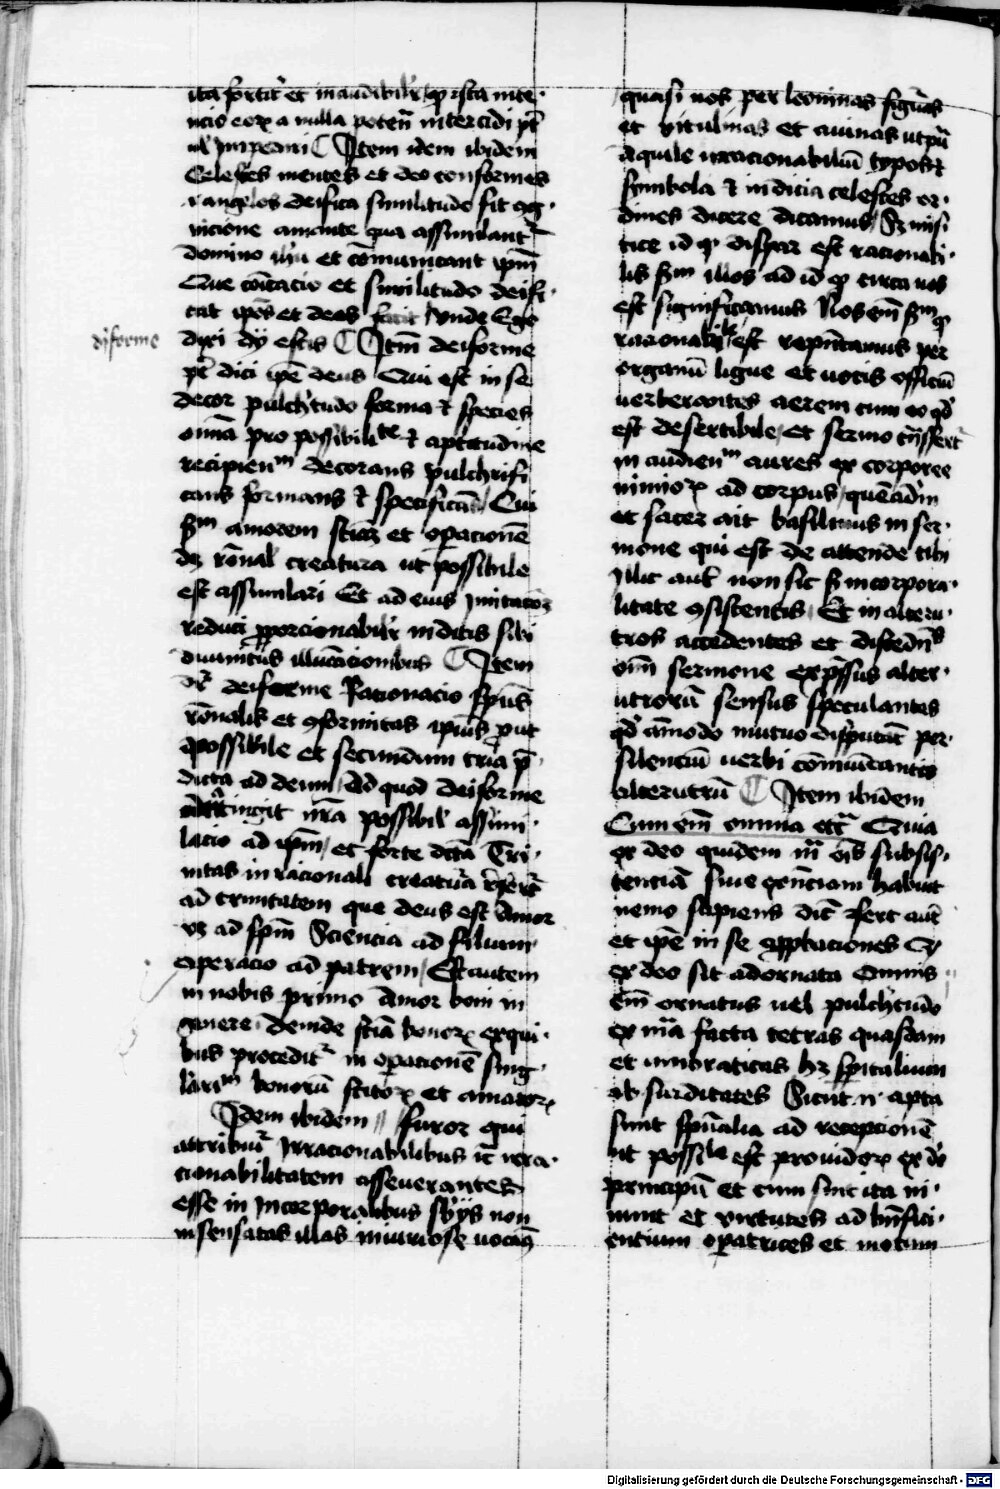 ita fortit᷑ et inaudibilit᷑ / qꝫ ista inte-
ncio eoꝝ a nulla poten̄ intercidi pt̄
ul͛ Impediri ⸿ Item idem ibidem
Celestes mentes et deo conformes
angelos deifica similitudo sit cog-
nicione amante qua assimilant᷑
domino illi et cōmunicant ipm̄
Que cōicacio et similitudo deifi-
cat ip̄os et deos facit Unde Ego
dixi dij estis ⸿ Itm̄ deiforme
dÿforme
pt̄ dici ip̄e deus Qui est in se
decor pulchͥtudo forma ⁊ species
oīnā pro possibilitᵗᵉ ⁊ aptitudine
recipienᵐ decorans pulchrifi-
cans formans ⁊ specificās / Qui
sᵐ amorem sciāꝫ et opacionē
dꝫ rōnal͛ creatura ut possibile
est assimilari Et ad eius Imitacōꝫ
reduci pporcionabilit᷑ inditis sibi
diuinitus illuīacionibus ⸿ Item
dr̄ deiforme Racionacio sp̄us
rōnalis et ꝯformitas ipīus put
possibile et secundum tria p̄-
dicta ad deum / Ad quod deiforme
attingit nr̄a possibil͛ assimi-
lacio ad ip̄m / et forte dicta Tri-
nitas in racionali creatura refert᷑
ad trinitatem que deus est Amor
vꝫ ad sp̄m Sciencia ad filium
operacio ad patrem / Est autem
in nobis primo Amor boni in
genere deinde sciā bonoꝝ ex qui-
bus procedit᷑ in opacionē sing-
lariᵐ bonorū scitoꝝ et amatoꝝ
Idem ibidem // furor qui
attribuit᷑ Irracionabilibus
cionabilitatem asseuerantes
esse in Incorporalibus sbÿs non
insensatas illas iniuriose uocam̄
quasi nos per leoninas figuras
et vitulinas et auinas utpū
aquile irracionabiliū typos ⁊
symbola ⁊ indicia celestes or-
dines dicere dicamus / Sꝫ misti-
tice id qꝫ dispar est racionabi-
lis sᵐ illos ad id qꝫ circa nos
est significamus Nos em̄ sᵐ qꝫ
racionabilᵉ est reputamus per
organū ligue et uocis officiū
uerberantes aerem cum eo qd̄
est desertibile / et sermo trāsfert᷑
in audienᵐ aures ex corporee
nimioꝝ ad corpus / quēadm̄
et sacer ait basilius in ser-
mone qui est de attende tibi
Illic aut̄ non sic s; incorpora-
litate ꝯsistentis / Et in alteru-
tros accedentes et discedn̄s
om̄ sermone expssius alter-
utrorū sensus speculantes
qd̄ āmodo mutuo disputāt per
silenciū uerbi cōmuīcantis
alterutrū ⸿ Item ibidem
Cum em̄ omnia etc᷑ Quia
ex deo quidem in oīs subsis-
tenciā siue essenciam habuit
nemo sapiens dic̄
et ip̄e in se
ex deo sit adornata Omnis
em̄ ornatus uel pulchͥtudo
ex mā facta tetras quasdam
et umbraticas hꝫ spitalium
ab surditates Sicut apta
sunt sp̄ualia ad recepcionē
ut possibᵉ est prouidoꝝ ex dō
principū et cum sint ita in-
nunt et virtutes ad bn̄fici-
entium opatrices et motum
Digitalisierung gefördert durch die Deutsche Forschungsgemeinschaft - DFG